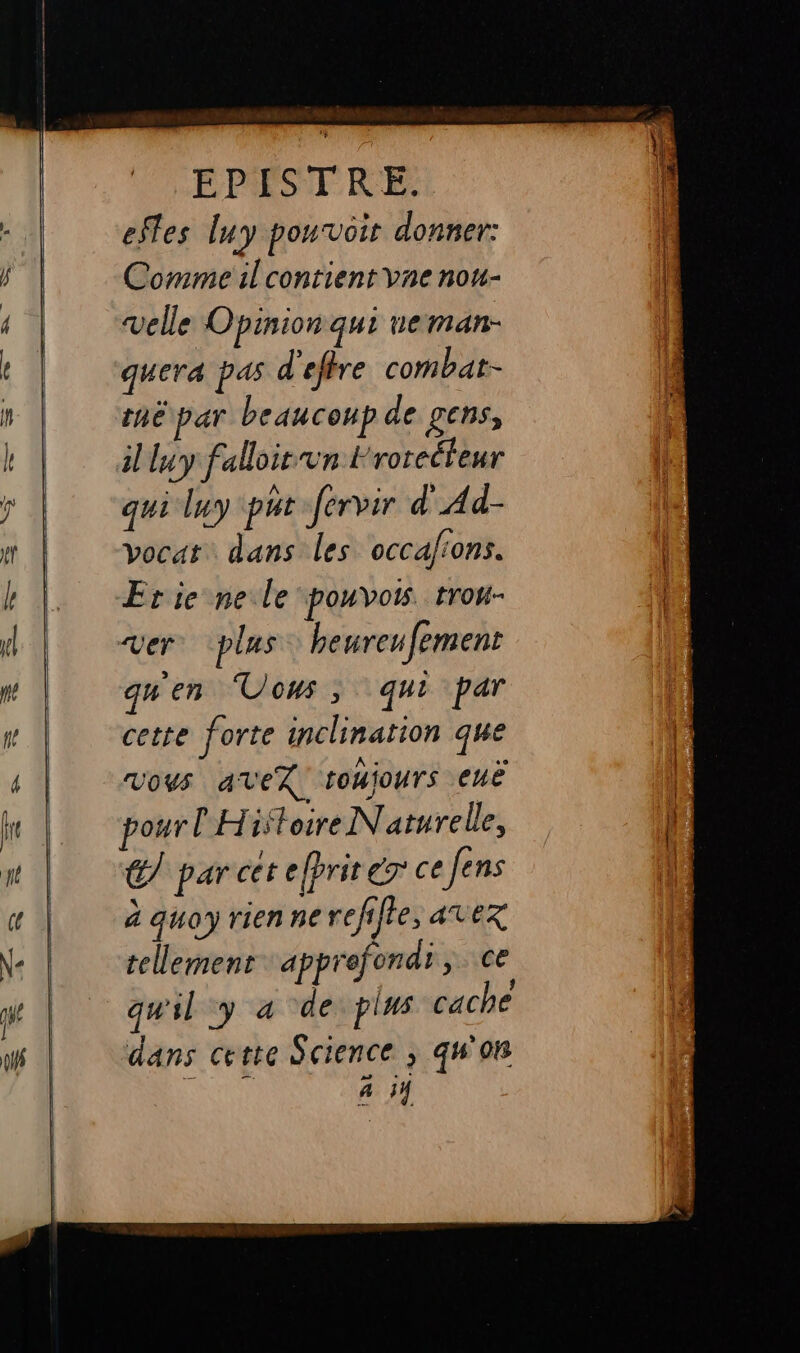 EPISTRE.
eſtes luy pouvoit donner:
Comme il contient vne nou-
velle Opinion qui ne man-
quera pas d'eſtre combat-
tuë par beaucoup de gens,
il luy falloit vn Protecteur
qui luy pût ſervir d'Ad-
vocat dans les occaſions.
Et ie ne le pouvois trou-
ver plus heureuſement
qu'en Vous, qui par
cette forte inclination que
vous aveZ toûjours euë
pour l'Histoire Naturelle,
& par cét eſprit & ce ſens
à quoy rien ne reſiſte, avez
tellement approfondi, ce
qu'il y a de plus caché
dans cette Science, qu'on
ã iij